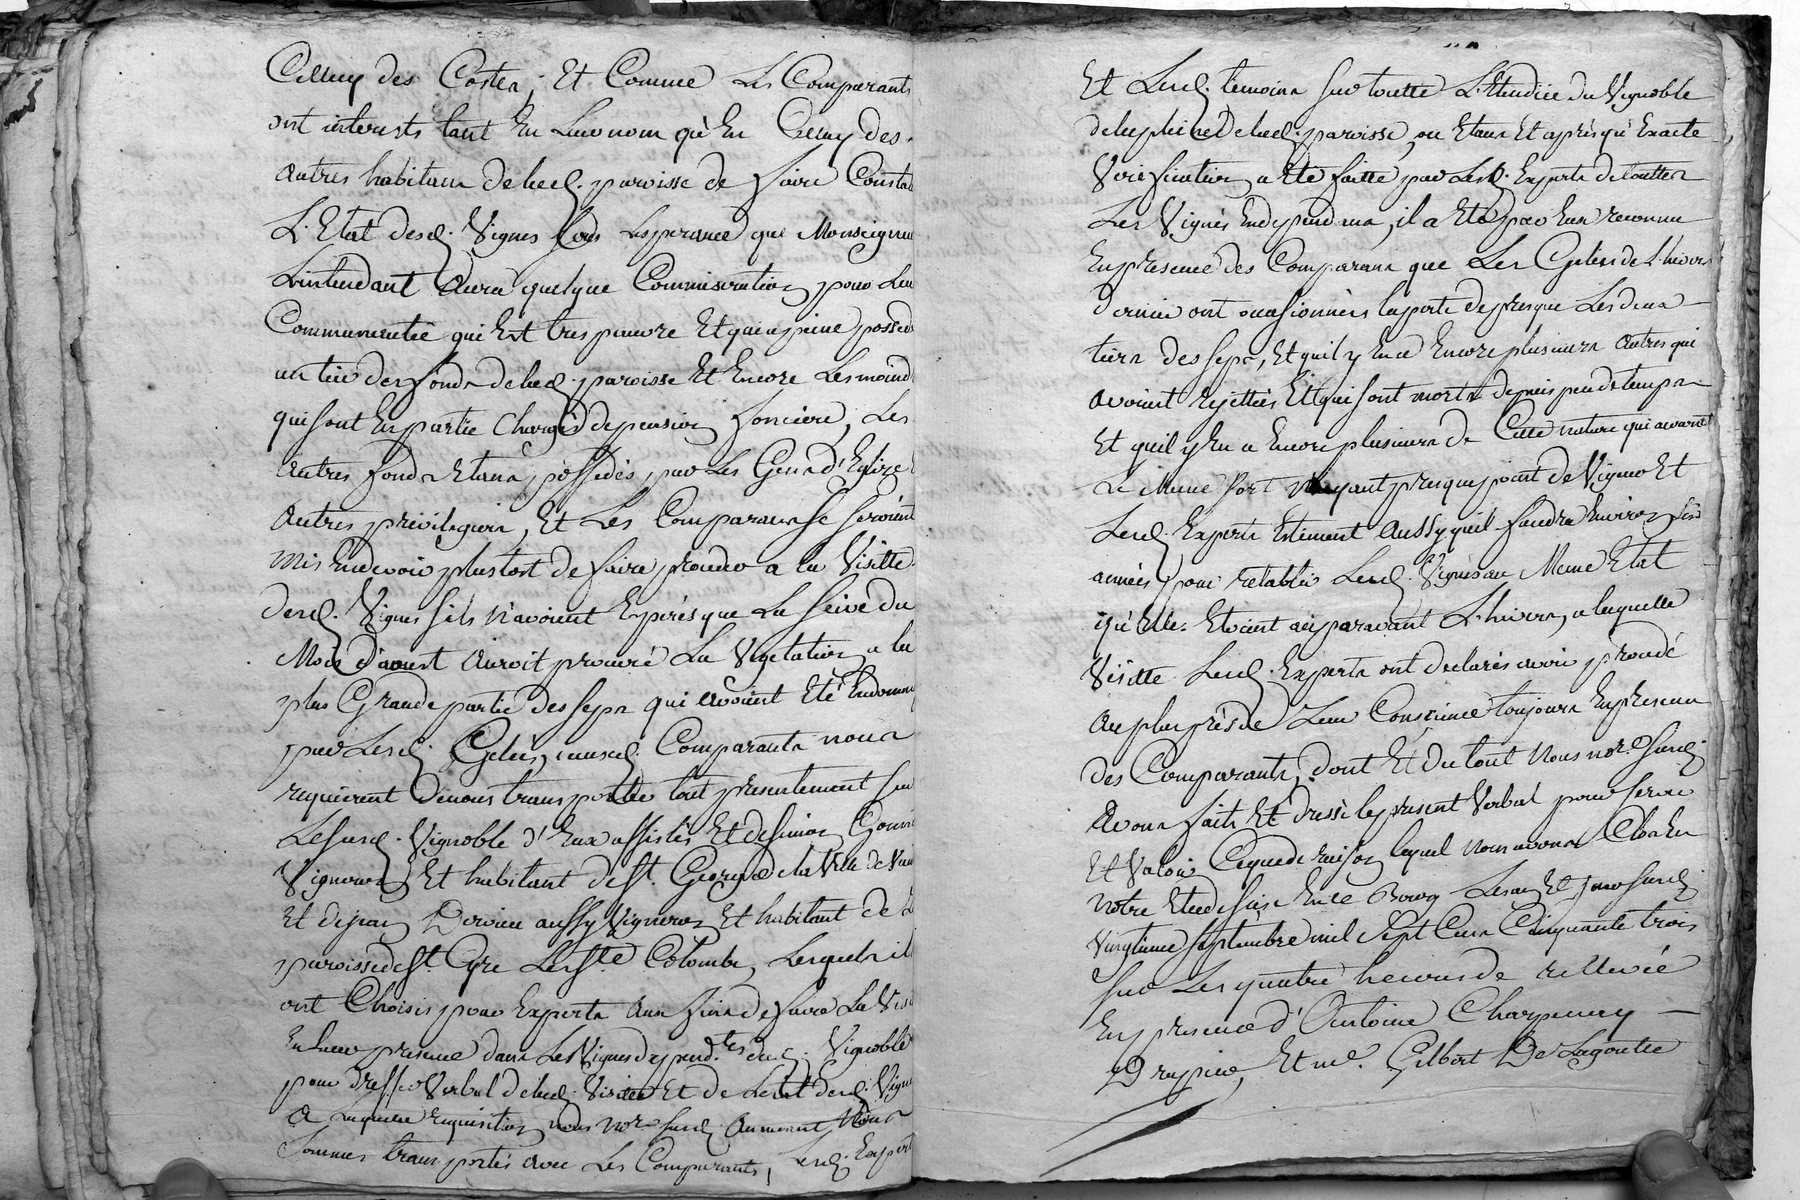 Celluy des Costes; Et Comme Les Comparants
ont interests tant En Leur nom qu'En Celluy des
autres habitans de lad. paroisse de faire Constat
L'Etat desd. Vignes sous Lesperance que Monseigneu
Lintendant aura quelque Commiseration pour Leu
Communeauté qui Est tres pauvre Et qui a peine possed
un tier des fonds de lad. paroisse Et Encore Les moind
qui sont En partie Chargés de pension fonciere, Les
autres fonds Etans possedés par Les Gens d'Eglize
autres privilegiers, Et Les Comparans se seroient
mis En devoir plustost de faire proceder a la Visitte
desd. Vignes sils n'avoient Esperés que La seive du
Mois d'aoust auroit procuré La Vegetation a la
plus Grande partie des seps qui avoient Eté Endomm
par Lesd. Gelées, iceusd. Comparants nous
requierent de nous transporter tout presentement sur
Le susd. Vignoble d'Eux assistés Et de simon
Vigneron Et habitant de St. George de la Ville de Vien
Et de jean Dervieu aussy Vigneron Et habitant de L
paroisse de St. Cyre Les Ste. Colombe, Lesquels il
ont Choisis pour Experts aux fins de faire La Visi
En Leur presence dans Les Vignes depend.tes dud. Vignoble
pour dresser Verbal de lad. Visitte Et de Letat desd. Vigne
a Laquelle requisition nous no.re susd. aurement Nous
sommes transportés avec Les Comparants, Lesd. Expert
Et Lesd. temoins sur toutte L'Etendüe du Vignoble
de la plaine de lad. paroisse, ou Etans Et aprés qu'Exacte
Verification a Eté faitte par Lesd. Experts de touttes
Les Vignes En dependans, il a Eté par Eux reconnu
En presence des Comparans que Les Gelées de L'hivers
dernier ont occasionnées la perte de presque Les deux
tiers des seps, Et quil y En a Encore plusieurs autres qui
avoient rejettées Et qui sont morts depuis peu de temps
Et quil y En a Encore plusieurs de Cette nature qui auront
Le Meme sort n'ayant presque point de Vigueur Et
Lesd. Experts Estiment aussy quil faudra Environ six
années pour retablir Lesd. Vignes au Meme Etat
qu'Elles Etoient auparavant L'hivers, a laquelle
Visitte Lesd. Experts ont declarés avoir procedé
au plus près de Leur Conscience toujours En presence
des Comparants, dont Et du tout Nous no.re susd.
avons fait Et dressé le present Verbal pour servir
Et Valoir Ceque de raison lequel nous avons Clos En
notre Etude sise En Ce Bourg Les an Et jour susd.
Vingtieme septembre mil sept Cens Cinquante trois
sur Les quatre heures de rellevée
En presence d'Antoine Charpenay
Drapier, Et me. Gilbert De Lagoutte